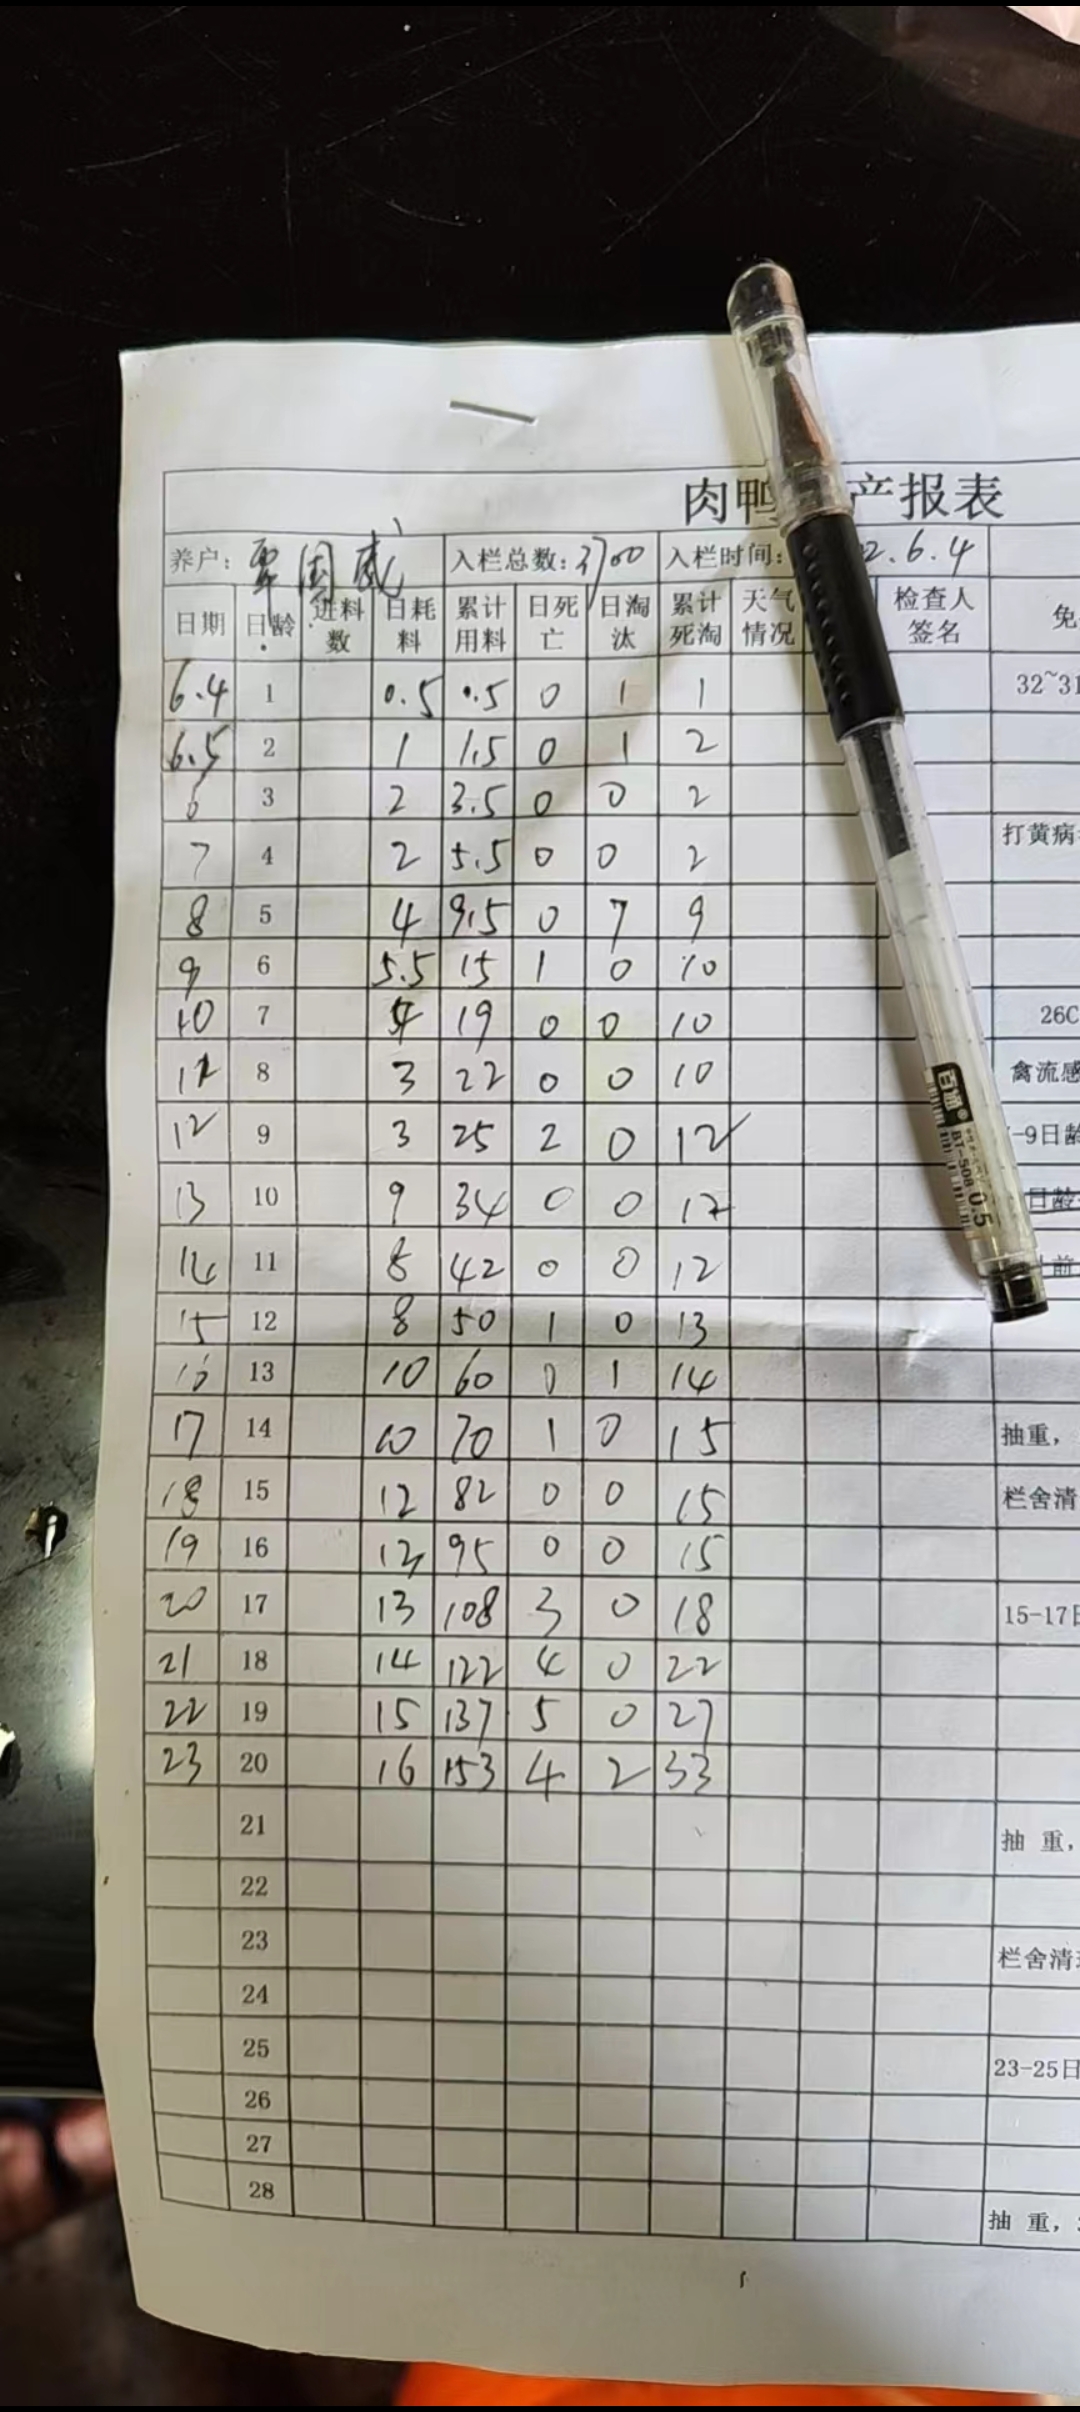 肉鸭 产报表
养户: 覃国威 入栏总数: 3700 入栏时间: 2.6.4
日期 日龄 进料数 日耗料 累计用料 日死亡 日淘汰 累计死淘 天气情况 检查人签名 免
6.4 1 0.5 0.5 0 1 1 32~31
6.5 2 1 1.5 0 1 2
6 3 2 3.5 0 0 2
7 4 2 5.5 0 0 2 打黄病
8 5 4 9.5 0 7 9
9 6 5.5 15 1 0 10
10 7 4 19 0 0 10 26C
11 8 3 22 0 0 10 禽流感
12 9 3 25 2 0 12 -9日龄
13 10 9 34 0 0 12 日龄
14 11 8 42 0 0 12 前
15 12 8 50 1 0 13
16 13 10 60 0 1 14
17 14 10 70 1 0 15 抽重,
18 15 12 82 0 0 15 栏舍清
19 16 13 95 0 0 15
20 17 13 108 3 0 18 15-17日
21 18 14 122 4 0 22
22 19 15 137 5 0 27
23 20 16 153 4 2 33
21 抽 重,
22
23 栏舍清
24
25 23-25日
26
27
28 抽 重,
百通 BT-508 0.5